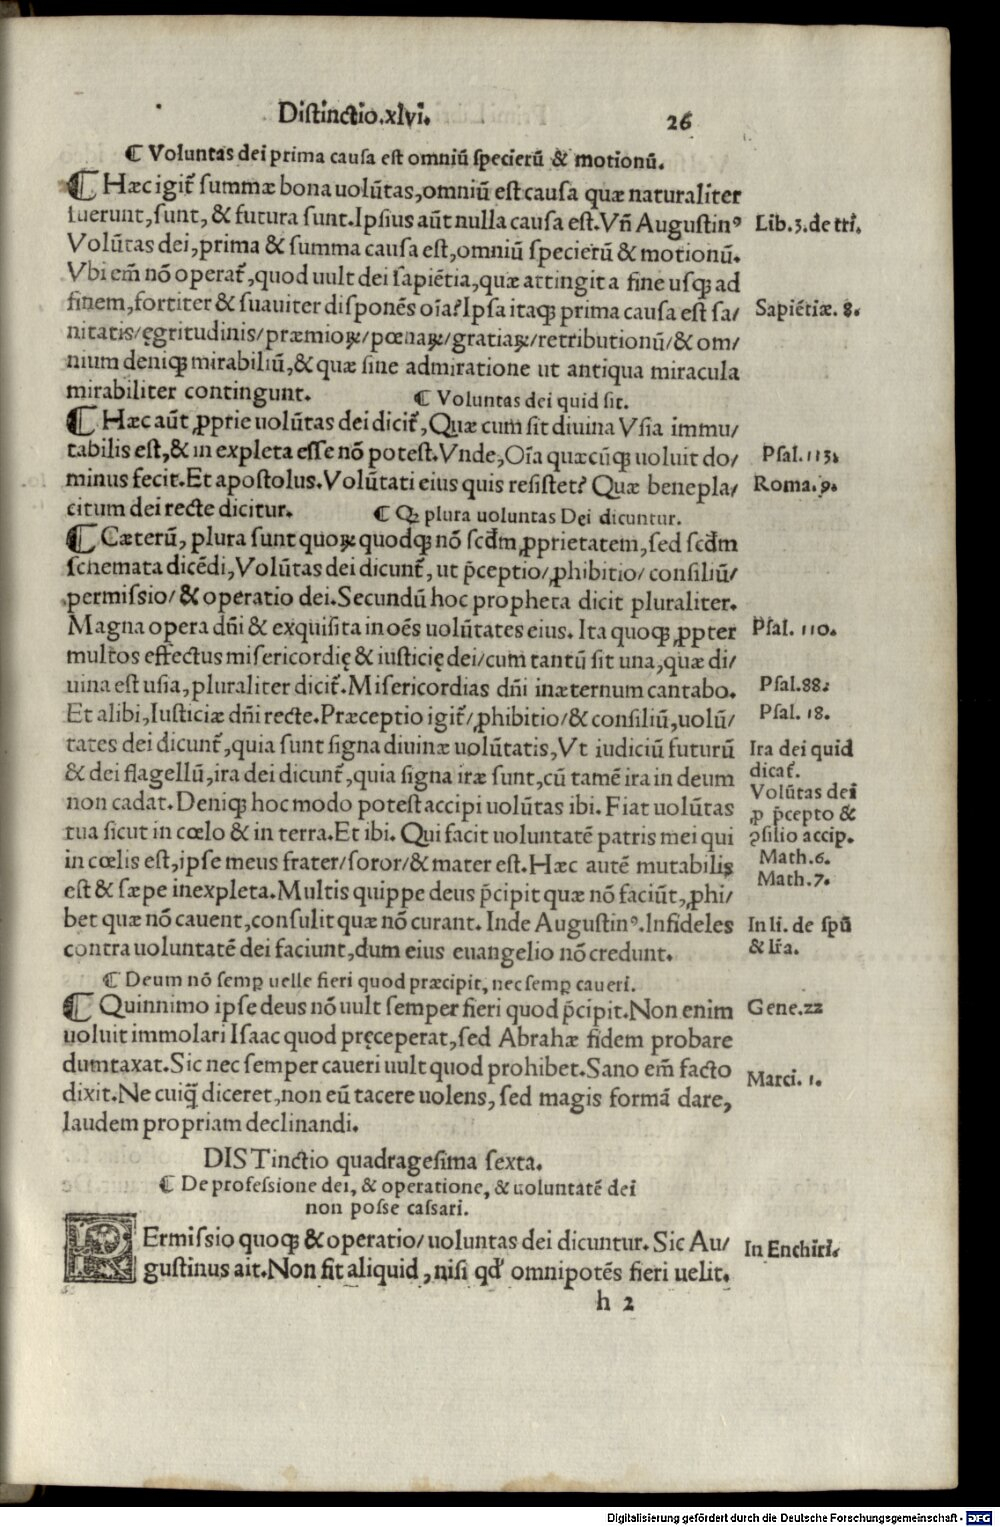 Distinctio.xlvi.
26
¶ Voluntas dei prima causa est omniũ specierũ & motionũ.
¶ Hæc igit̃ summæ bona uolũtas, omniũ est causa quæ naturaliter
fuerunt, sunt, & futura sunt. Ipsius aũt nulla causa est. Vñ Augustinꝰ
Lib. 3. de tri.
Volũtas dei, prima & summa causa est, omniũ specierũ & motionũ.
Vbi em̃ nõ operat̃, quod uult dei sapiẽtia, quæ attingit a fine usqꝫ ad
finem, fortiter & suauiter disponẽs oĩa? Ipsa itaqꝫ prima causa est sa/
Sapiẽtiæ. 8.
nitatis/ ęgritudinis/ præmioꝝ/ pœnaꝝ/ gratiaꝝ/ retributionũ/ & om/
nium deniqꝫ mirabiliũ, & quæ sine admiratione ut antiqua miracula
mirabiliter contingunt.
¶ Voluntas dei quid sit.
¶ Hæc aũt ꝓprie uolũtas dei dicit̃, Quæ cum sit diuina Vsia immu/
tabilis est, & in expleta esse nõ potest. Vnde, Oĩa quæcũqꝫ uoluit do/
Psal. 113.
minus fecit. Et apostolus. Volũtati eius quis resistet? Quæ benepla/
Roma. 9.
citum dei recte dicitur.
¶ Qꝫ plura uoluntas Dei dicuntur.
¶ Cæterũ, plura sunt quoꝝ quodqꝫ nõ scđm ꝓprietatem, sed scđm
schemata dicẽdi, Volũtas dei dicunt̃, ut p̃ceptio/ ꝓhibitio/ consiliũ/
permissio/ & operatio dei. Secundũ hoc propheta dicit pluraliter.
Magna opera dñi & exquisita in oẽs uolũtates eius. Ita quoqꝫ ꝓpter
Psal. 110.
multos effectus misericordię & iusticię dei/ cum tantũ sit una, quæ di/
uina est usia, pluraliter dicit̃. Misericordias dñi inæternum cantabo.
Psal. 88.
Et alibi, Iusticiæ dñi recte. Præceptio igit̃/ ꝓhibitio/ & consiliũ, uolũ/
Psal. 18.
tates dei dicunt̃, quia sunt signa diuinæ uolũtatis, Vt iudiciũ futurũ
Ira dei quid
& dei flagellũ, ira dei dicunt̃, quia signa iræ sunt, cũ tamẽ ira in deum
dicat̃.
non cadat. Deniqꝫ hoc modo potest accipi uolũtas ibi. Fiat uolũtas
Volũtas dei
ꝓ p̃cepto &
tua sicut in cœlo & in terra. Et ibi. Qui facit uoluntatẽ patris mei qui
ꝯsilio accip.
in cœlis est, ipse meus frater/ soror/ & mater est. Hæc autẽ mutabilis
Math. 6.
Math. 7.
est & sæpe inexpleta. Multis quippe deus p̃cipit quæ nõ faciũt, ꝓhi/
bet quæ nõ cauent, consulit quæ nõ curant. Inde Augustinꝰ. Infideles
In li. de spũ
contra uoluntatẽ dei faciunt, dum eius euangelio nõ credunt.
& lr̃a.
¶ Deum nõ semꝑ uelle fieri quod præcipit, nec semꝑ caueri.
¶ Quinnimo ipse deus nõ uult semper fieri quod p̃cipit. Non enim
Gene. 22
uoluit immolari Isaac quod pręceperat, sed Abrahæ fidem probare
dumtaxat. Sic nec semper caueri uult quod prohibet. Sano em̃ facto
Marci. 1.
dixit. Ne cuiq̃ diceret, non eũ tacere uolens, sed magis formã dare,
laudem propriam declinandi.
DISTinctio quadragesima sexta.
¶ De professione dei, & operatione, & uoluntatẽ dei
non posse cassari.
PErmissio quoqꝫ & operatio/ uoluntas dei dicuntur. Sic Au/
In Enchiri.
gustinus ait. Non fit aliquid, nisi qđ omnipotẽs fieri uelit.
h 2
Digitalisierung gefördert durch die Deutsche Forschungsgemeinschaft - DFG